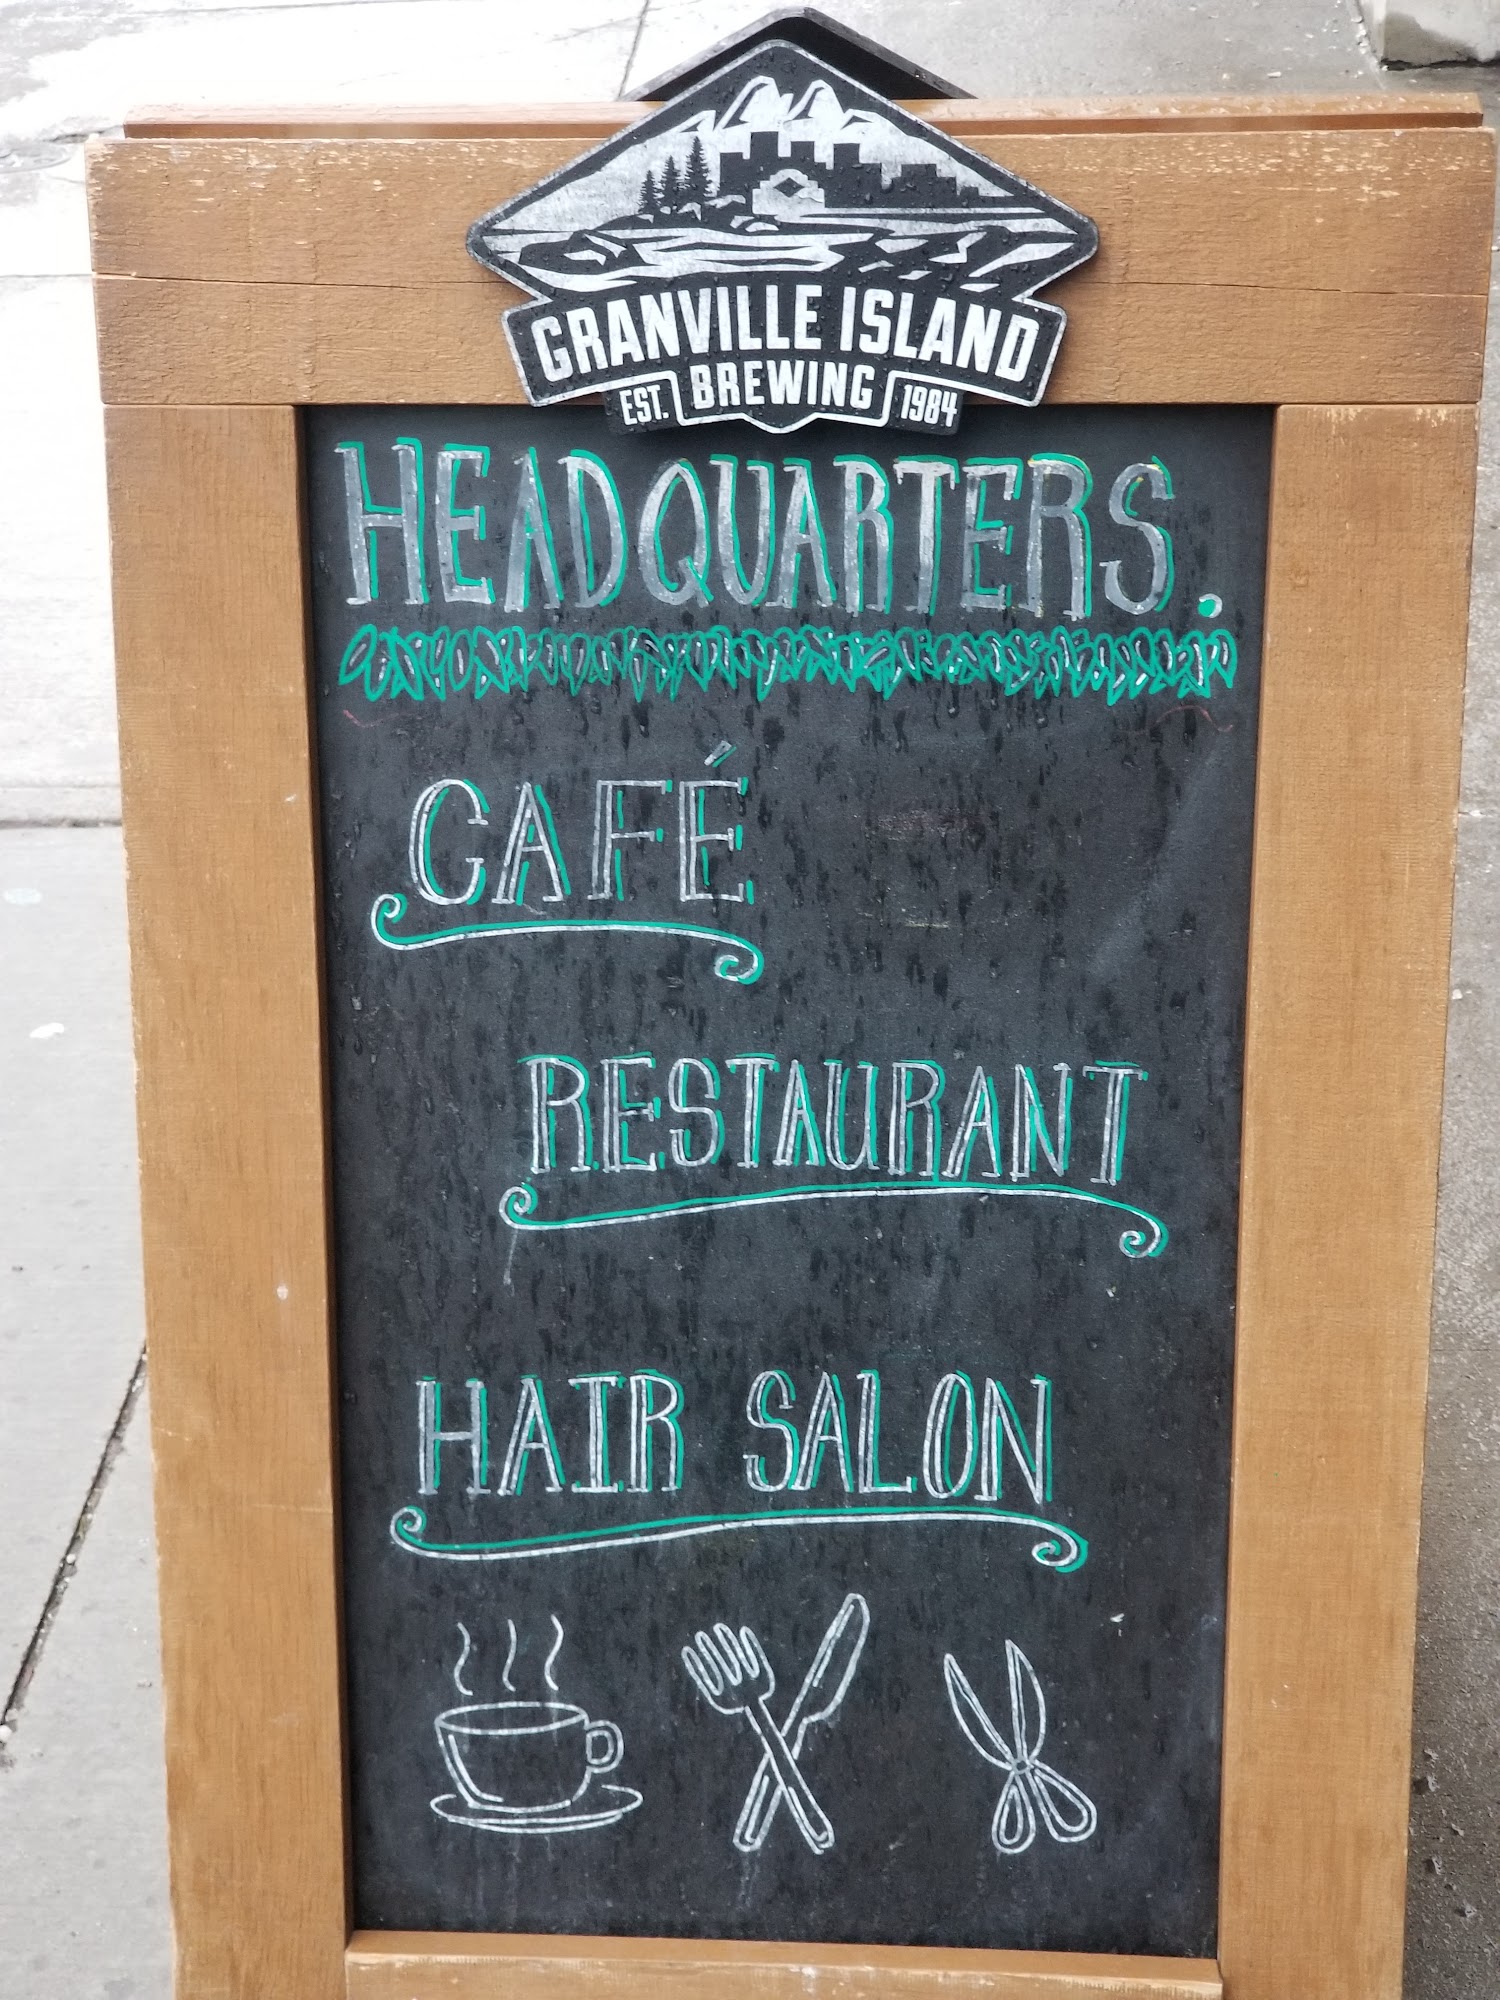 GRANVILLE ISLAND
EST. BREWING 1984
HEADQUARTERS.
CAFÉ
RESTAURANT
HAIR SALON